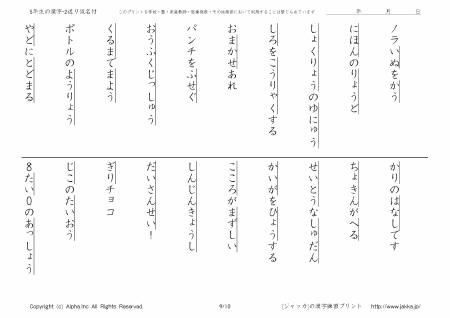 5年生の漢字-2送り仮名付
このプリントを学校・塾・家庭教師・医療機関・その他施設において利用することは禁じられています
年　月　日
ノラいぬをかう
にほんのりょうど
しょくりょうのゆにゅう
しろをこうりゃくする
おまかせあれ
パンチをふせぐ
おうふくじっしゅう
くるまでまよう
ボトルのようりょう
やどにとどまる
かりのはなしです
ちょきんがへる
せいとうなしゅだん
かいがをひょうする
こころがまずしい
しんじんきょうし
だいさんせい！
ぎりチョコ
じこのたいおう
8たい0のあっしょう
Copyright (c) Alpha.Inc All Rights Reserved.
9/10
[ジャッカ]の漢字練習プリント
http://www.jakka.jp/